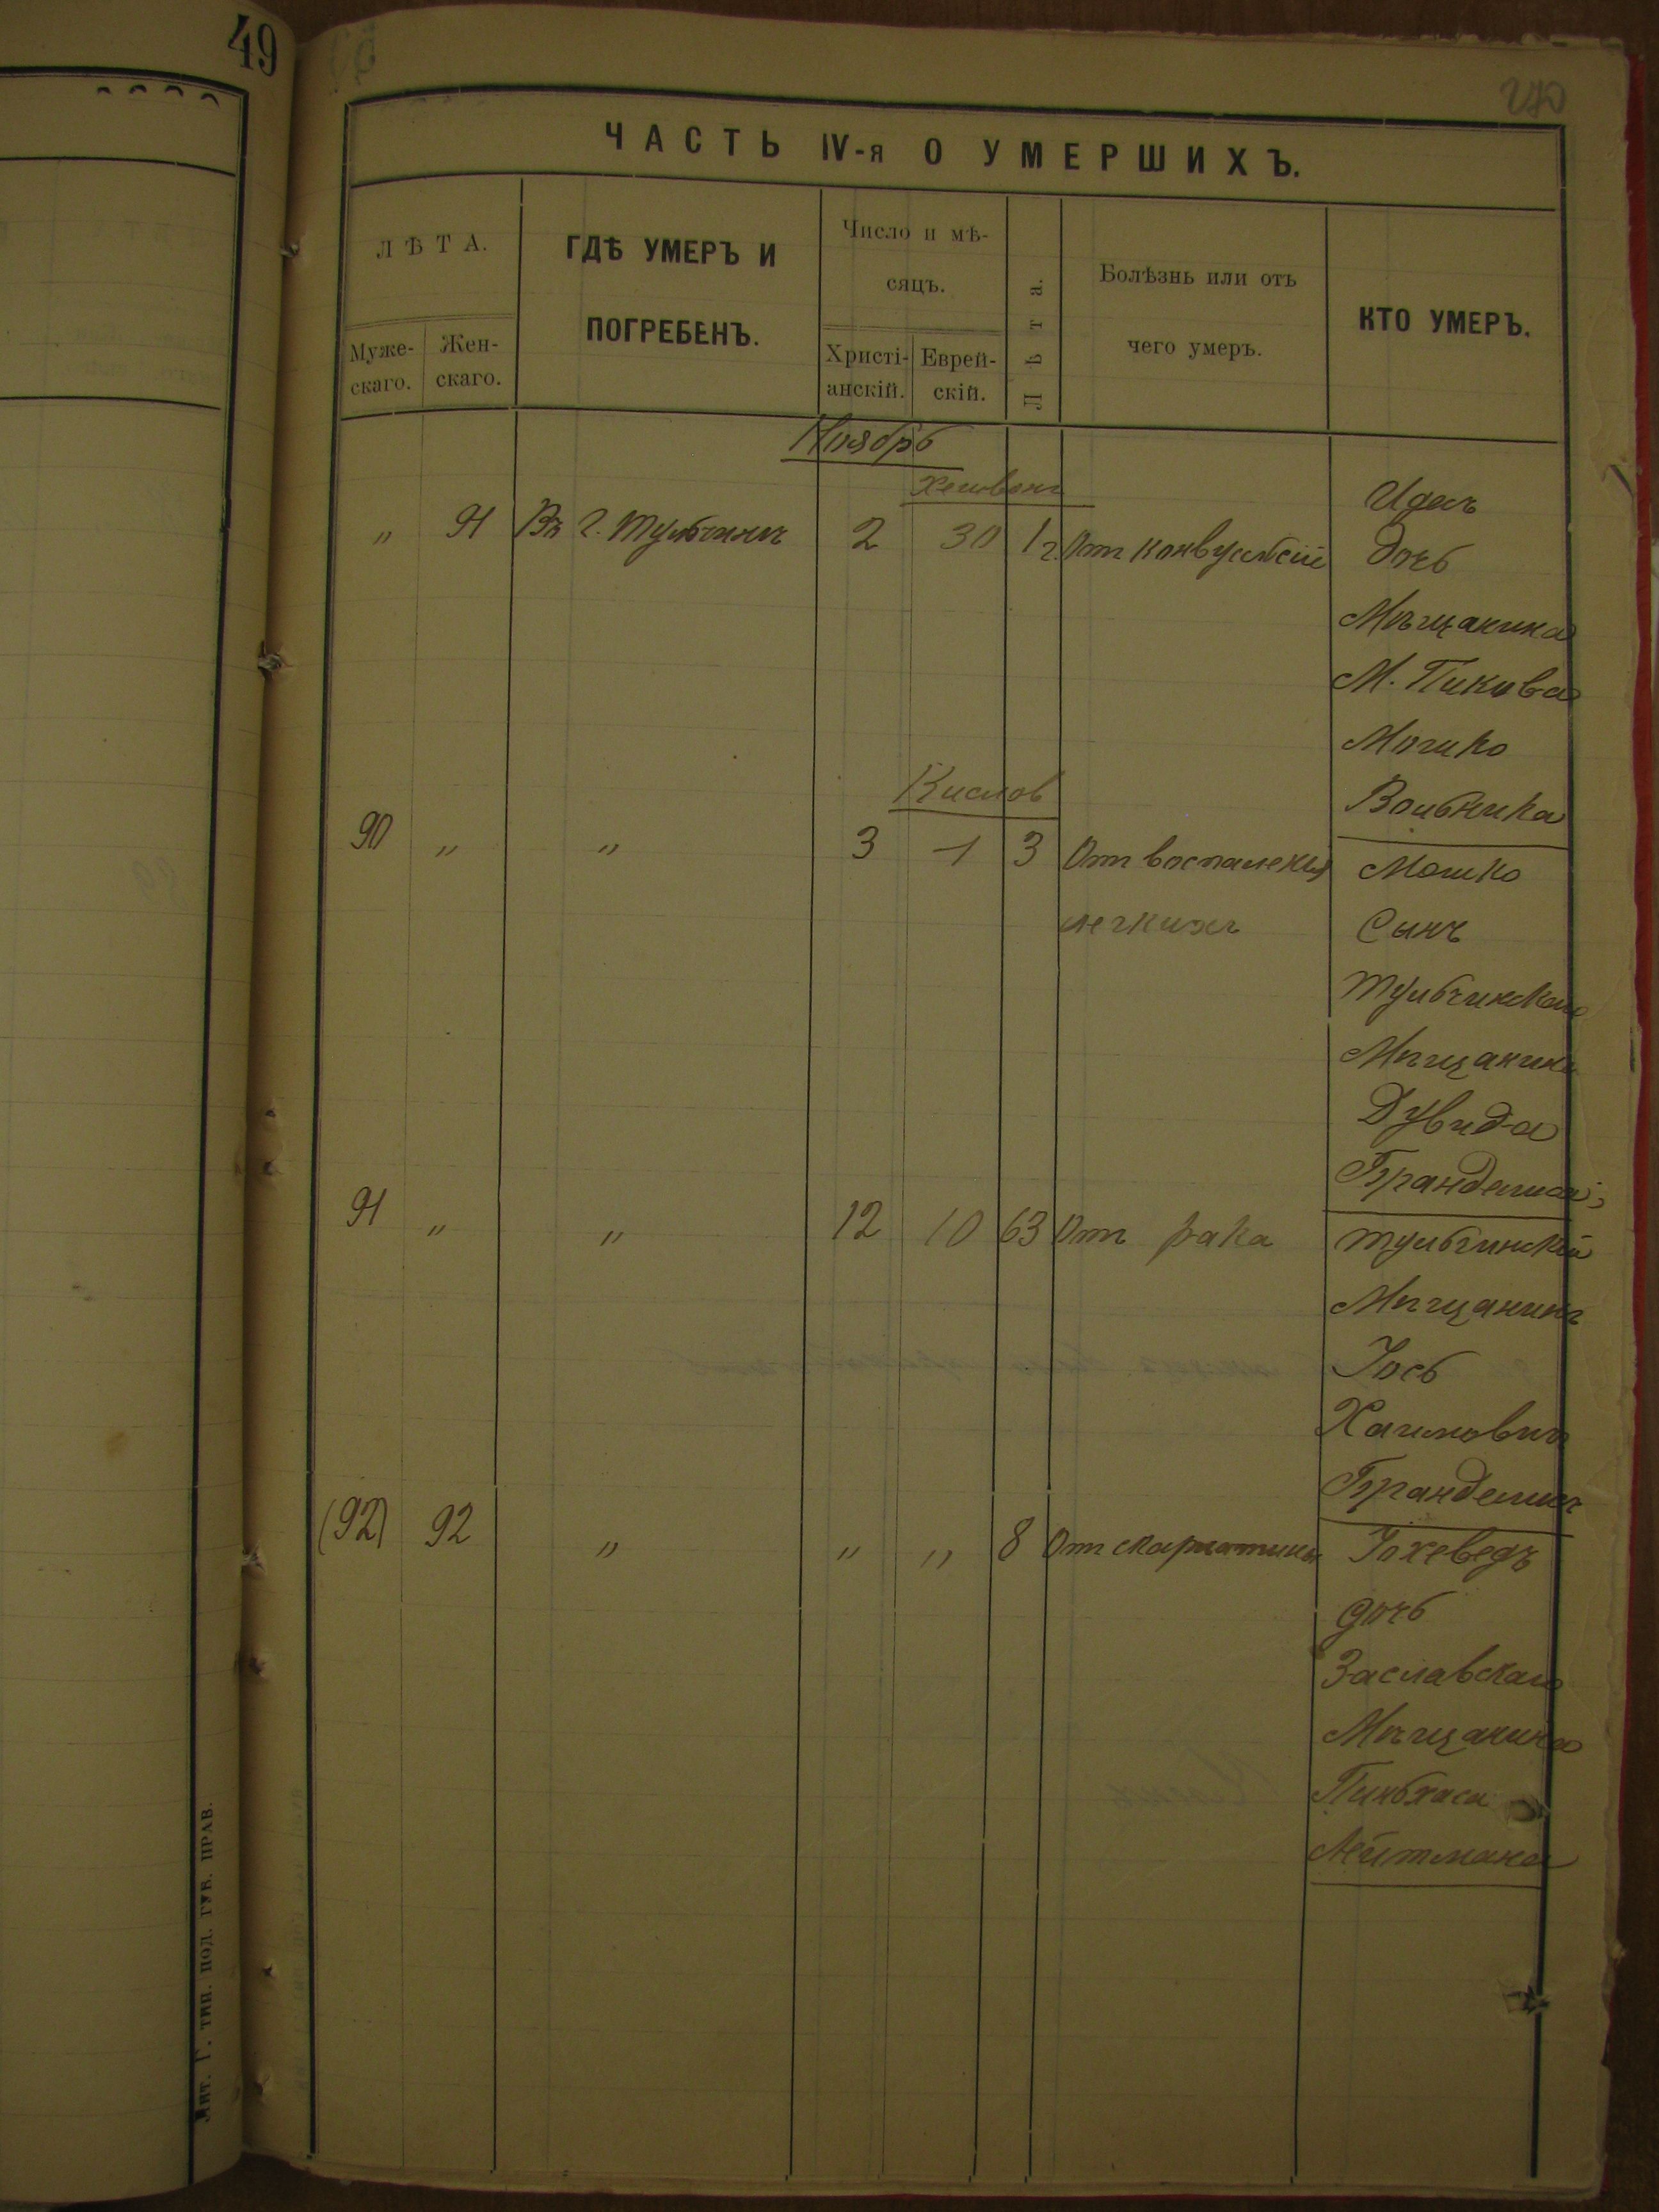 49
270
ЧАСТЬ IV-я О УМЕРШИХЪ.
ЛѢТА.
Муже-
скаго.
Жен-
скаго.
ГДѢ УМЕРЪ И
ПОГРЕБЕНЪ.
Число и мѣ-
сяцъ.
Христі-
анскій.
Еврей-
скій.
Лѣта.
Болѣзнь или отъ
чего умеръ.
КТО УМЕРЪ.
Ноябрь
Хешвонъ
„ 91 Въ г. Тульчинѣ 2 30 1 г. Отъ конвульсіи
Идесъ
дочь
Мѣщанина
М. Пикова
Мошко
Кислов
90 „ „ 3 1 3 Отъ воспаленія
легкихъ
Мошко
Сынъ
Тульчинскаго
Мѣщанина
Дувида
91 „ „ 12 10 63 Отъ рака
Тульчинскій
Мѣщанинъ
Іось
Хаимовичъ
(92) 92 „ „ „ 8 Отъ скарлатины
Іохеведъ
дочь
Заславскаго
Мѣщанина
Пиньхаса
Лейтмана
Лит. Г. тип. под. губ. прав.